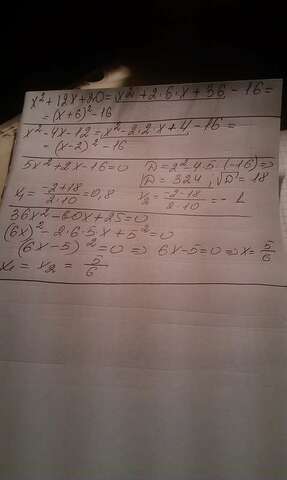 x² + 12x + 20 = x² + 2·6·x + 36 - 16 =
= (x+6)² - 16
x² - 4x - 12 = x² - 2·2x + 4 - 16 =
= (x-2)² - 16
5x² + 2x - 16 = 0 D = 2² 4·5·(-16) =>
D = 324, √D = 18
x₁ = (-2+18)/(2·10) = 0,8 x₂ = (-2-18)/(2·10) = -1
36x² - 60x + 25 = 0
(6x)² - 2·6·5x + 5² = 0
(6x-5)² = 0 => 6x-5=0 => x = 5/6
x₁ = x₂ = 5/6